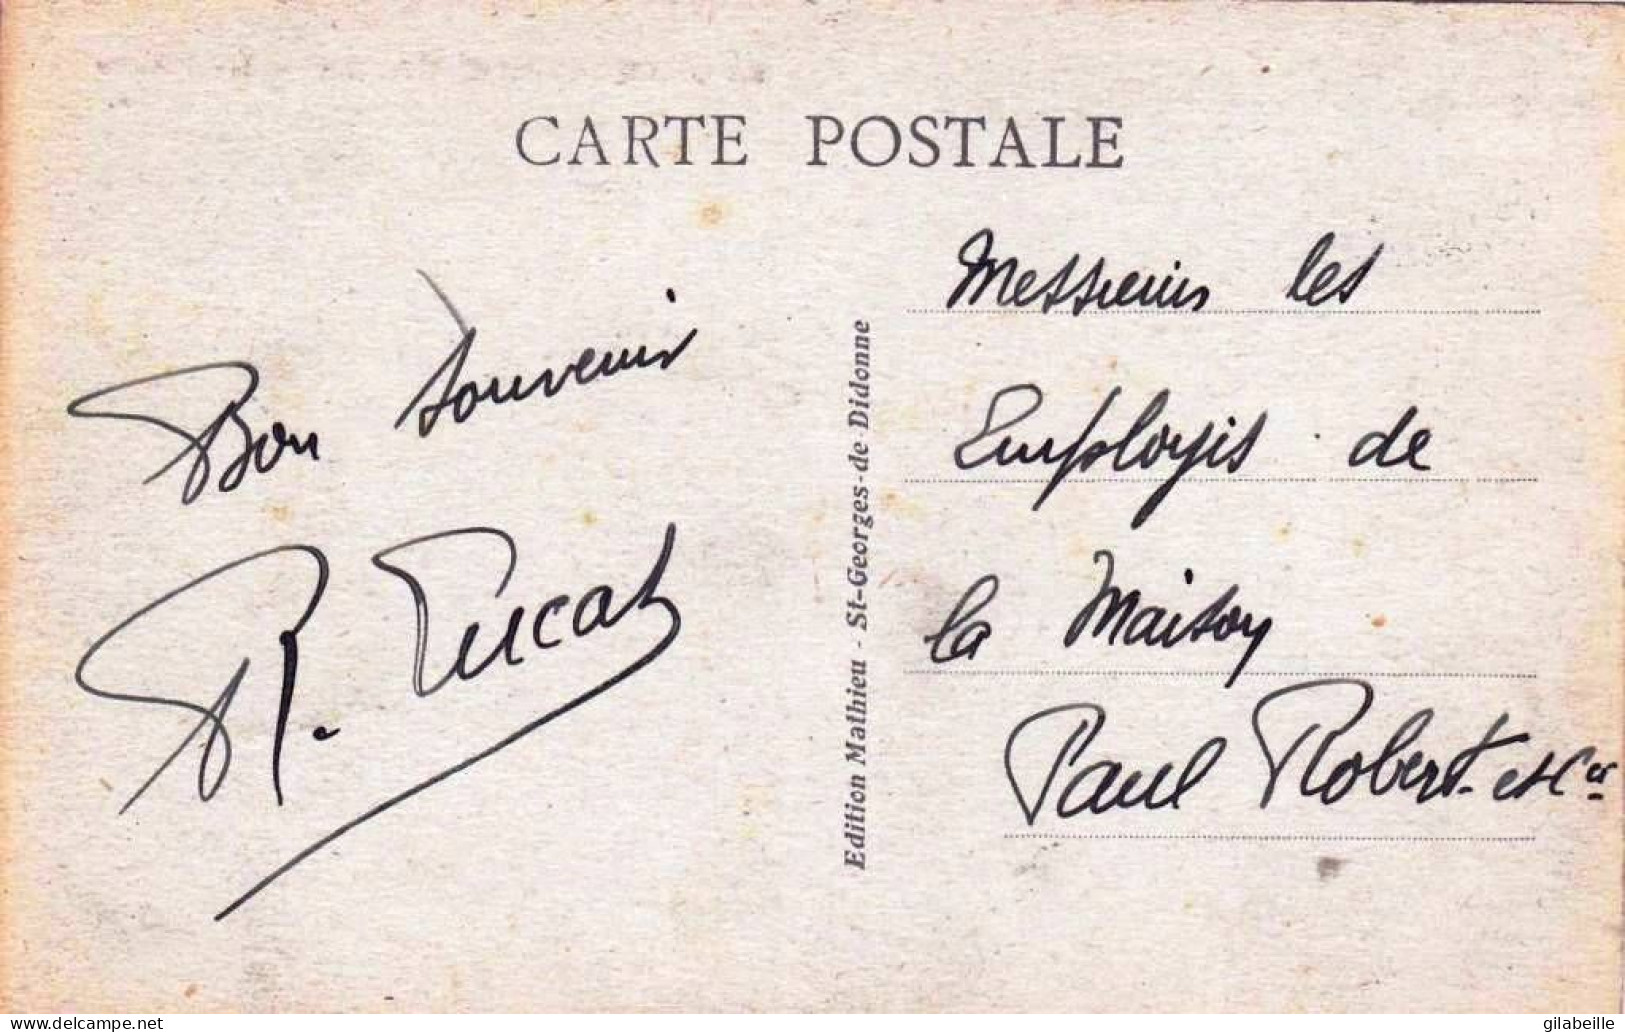 CARTE POSTALE
Bon souvenir
R.
Edition Mathieu - St-Georges-de Didonne
Messieurs les
Employés de
la Maison
Paul Robert et Cie
delcampe.net
gilabeille